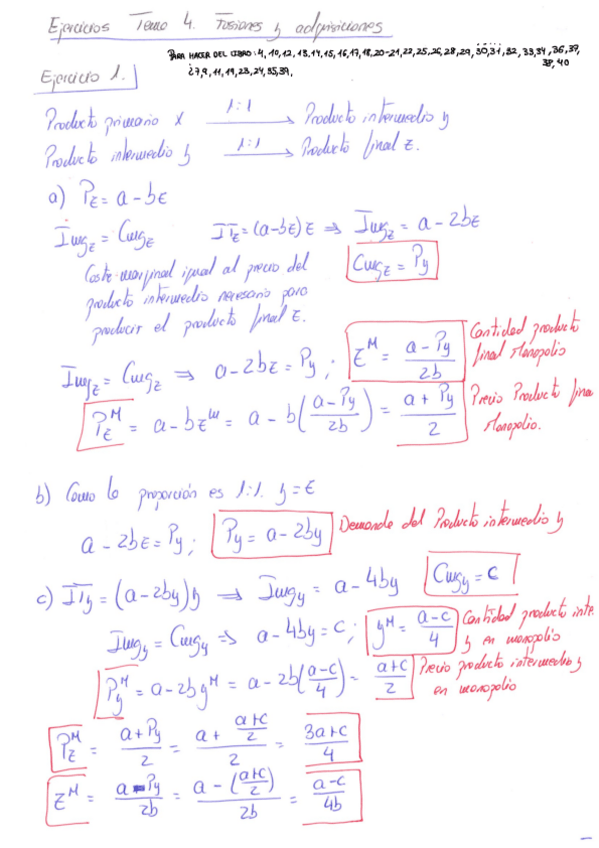 Ejercicios Tema 4. Fusiones y adquisiciones
PARA HACER DEL LIBRO: 4, 10, 12, 13, 14, 15, 16, 17, 18, 20-21, 22, 25, 26, 28, 29, 30, 31, 32, 33, 34, 36, 37,
38, 40
¿7, 9, 11, 19, 23, 24, 35, 39,
Ejercicio 1.
Producto primario x 1:1 → Producto intermedio y
Producto intermedio y 1:1 → Producto final z.
a) Pz = a - bz
Imgz = Cmgz ITz = (a-bz)z ⇒ Imgz = a - 2bz
Coste marginal igual al precio del Cmgz = Py
producto intermedio necesario para
producir el producto final z.
Imgz = Cmgz ⇒ a - 2bz = Py ; z^M = (a - Py)/2b Cantidad producto final Monopolio
Pz^M = a - bz^M = a - b((a - Py)/2b) = (a + Py)/2 Precio Producto fina Monopolio.
b) Como la proporción es 1:1. y = z
a - 2bz = Py ; Py = a - 2by Demanda del Producto intermedio y
c) ITy = (a - 2by)y ⇒ Imgy = a - 4by Cmgy = c
Imgy = Cmgy ⇒ a - 4by = c ; y^M = (a-c)/4 Cantidad producto inte y en monopolio
Py^M = a - 2by^M = a - 2b((a-c)/4) = (a+c)/2 Precio producto intermedio y en monopolio
Pz^M = (a + Py)/2 = (a + (a+c)/2)/2 = (3a+c)/4
z^M = (a - Py)/2b = (a - ((a+c)/2))/2b = (a-c)/4b